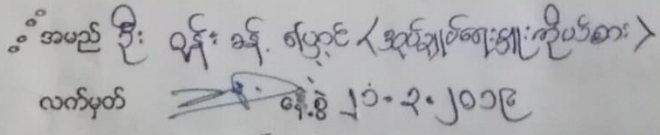 အမည် ဦး ဝှန်း ခန့် ပြောင် <အုပ်ချုပ်ရေးမှူး ကိုယ်စား>
လက်မှတ် နေ့စွဲ ၂၁.၃.၂၀၁၉